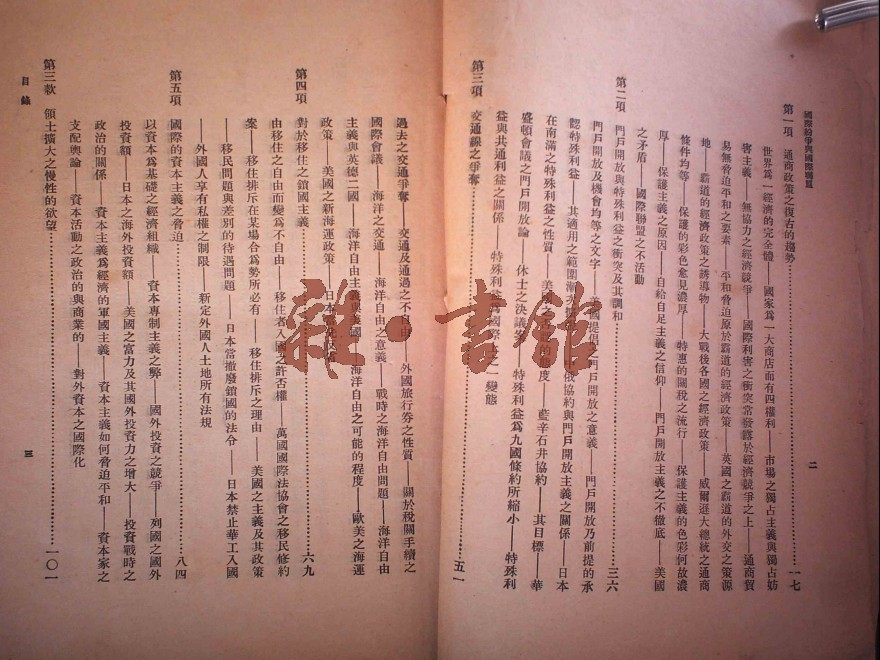 國際紛爭與國際聯盟
二
第一項 通商政策之復古的趨勢……一七
世界為一經濟的完全體——國家為一大商店而有四權利——市場之獨占主義與獨占妨
害主義——無協力之經濟競爭——國際利害之衝突常發露於經濟競爭之上——通商貿
易無脅迫平和之要素——平和脅迫原於霸道的經濟政策——英國之霸道的外交之策源
地——霸道的經濟政策之誘導物——大戰後各國之經濟政策——威爾遜大總統之通商
條件均等——保護的彩色愈見濃厚——特惠的關稅之流行——保護主義的色彩何故濃
厚——保護主義之原因——自給自足主義之信仰——門戶開放主義之不徹底——美國
之矛盾——國際聯盟之不活動
第二項 門戶開放與特殊利益之衝突及其調和……三六
門戶開放及機會均等之文字——美國提倡門戶開放之意義——門戶開放乃前提的承
認特殊利益——其適用之範圍漸次擴 俄協約與門戶開放主義之關係——日本
在南滿之特殊利益之性質——美 度——藍辛石井協約——其目標——華
盛頓會議之門戶開放論——休士之決議案——特殊利益為九國條約所縮小——特殊利
益與共通利益之關係——特殊利益為國際 之一變態
第三項 交通線之爭奪……五一
過去之交通爭奪——交通及通過之不自由——外國旅行券之性質——關於稅關手續之
國際會議——海洋之交通——海洋自由之意義——戰時之海洋自由問題——海洋自由
主義與英德二國——海洋自由主義與美國——海洋自由之可能的程度——歐美之海運
政策——美國之新海運政策——日本
第四項 對於移住之鎖國主義……六九
由移住之自由而變為不自由——移住者入國之許否權——萬國國際法協會之移民條約
案——移住排斥在某場合為勢所必有——移住排斥之理由——美國之主義及其政策
——移民問題與差別的待遇問題——日本當撤廢鎖國的法令——日本禁止華工入國
——外國人享有私權之制限——新定外國人土地所有法規
第五項 國際的資本主義之脅迫……八四
以資本為基礎之經濟組織——資本專制主義之弊——國外投資之競爭——列國之國外
投資額——日本之海外投資額——美國之富力及其國外投資力之增大——投資戰時之
政治的關係——資本主義為經濟的軍國主義——資本主義如何脅迫平和——資本家之
支配輿論——資本活動之政治的與商業的——對外資本之國際化
第三款 領土擴大之慢性的欲望……一〇一
目錄
三
雜·書館